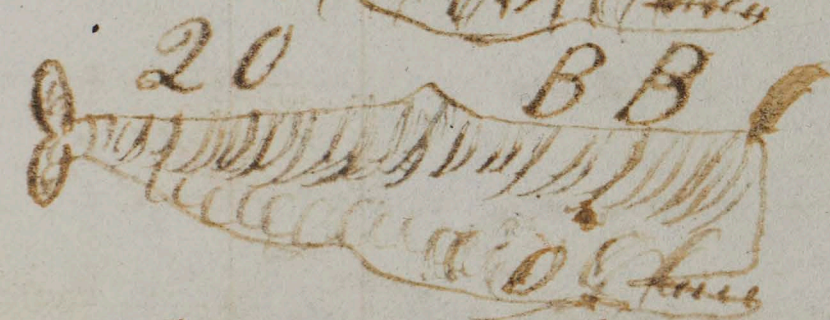 20 BB